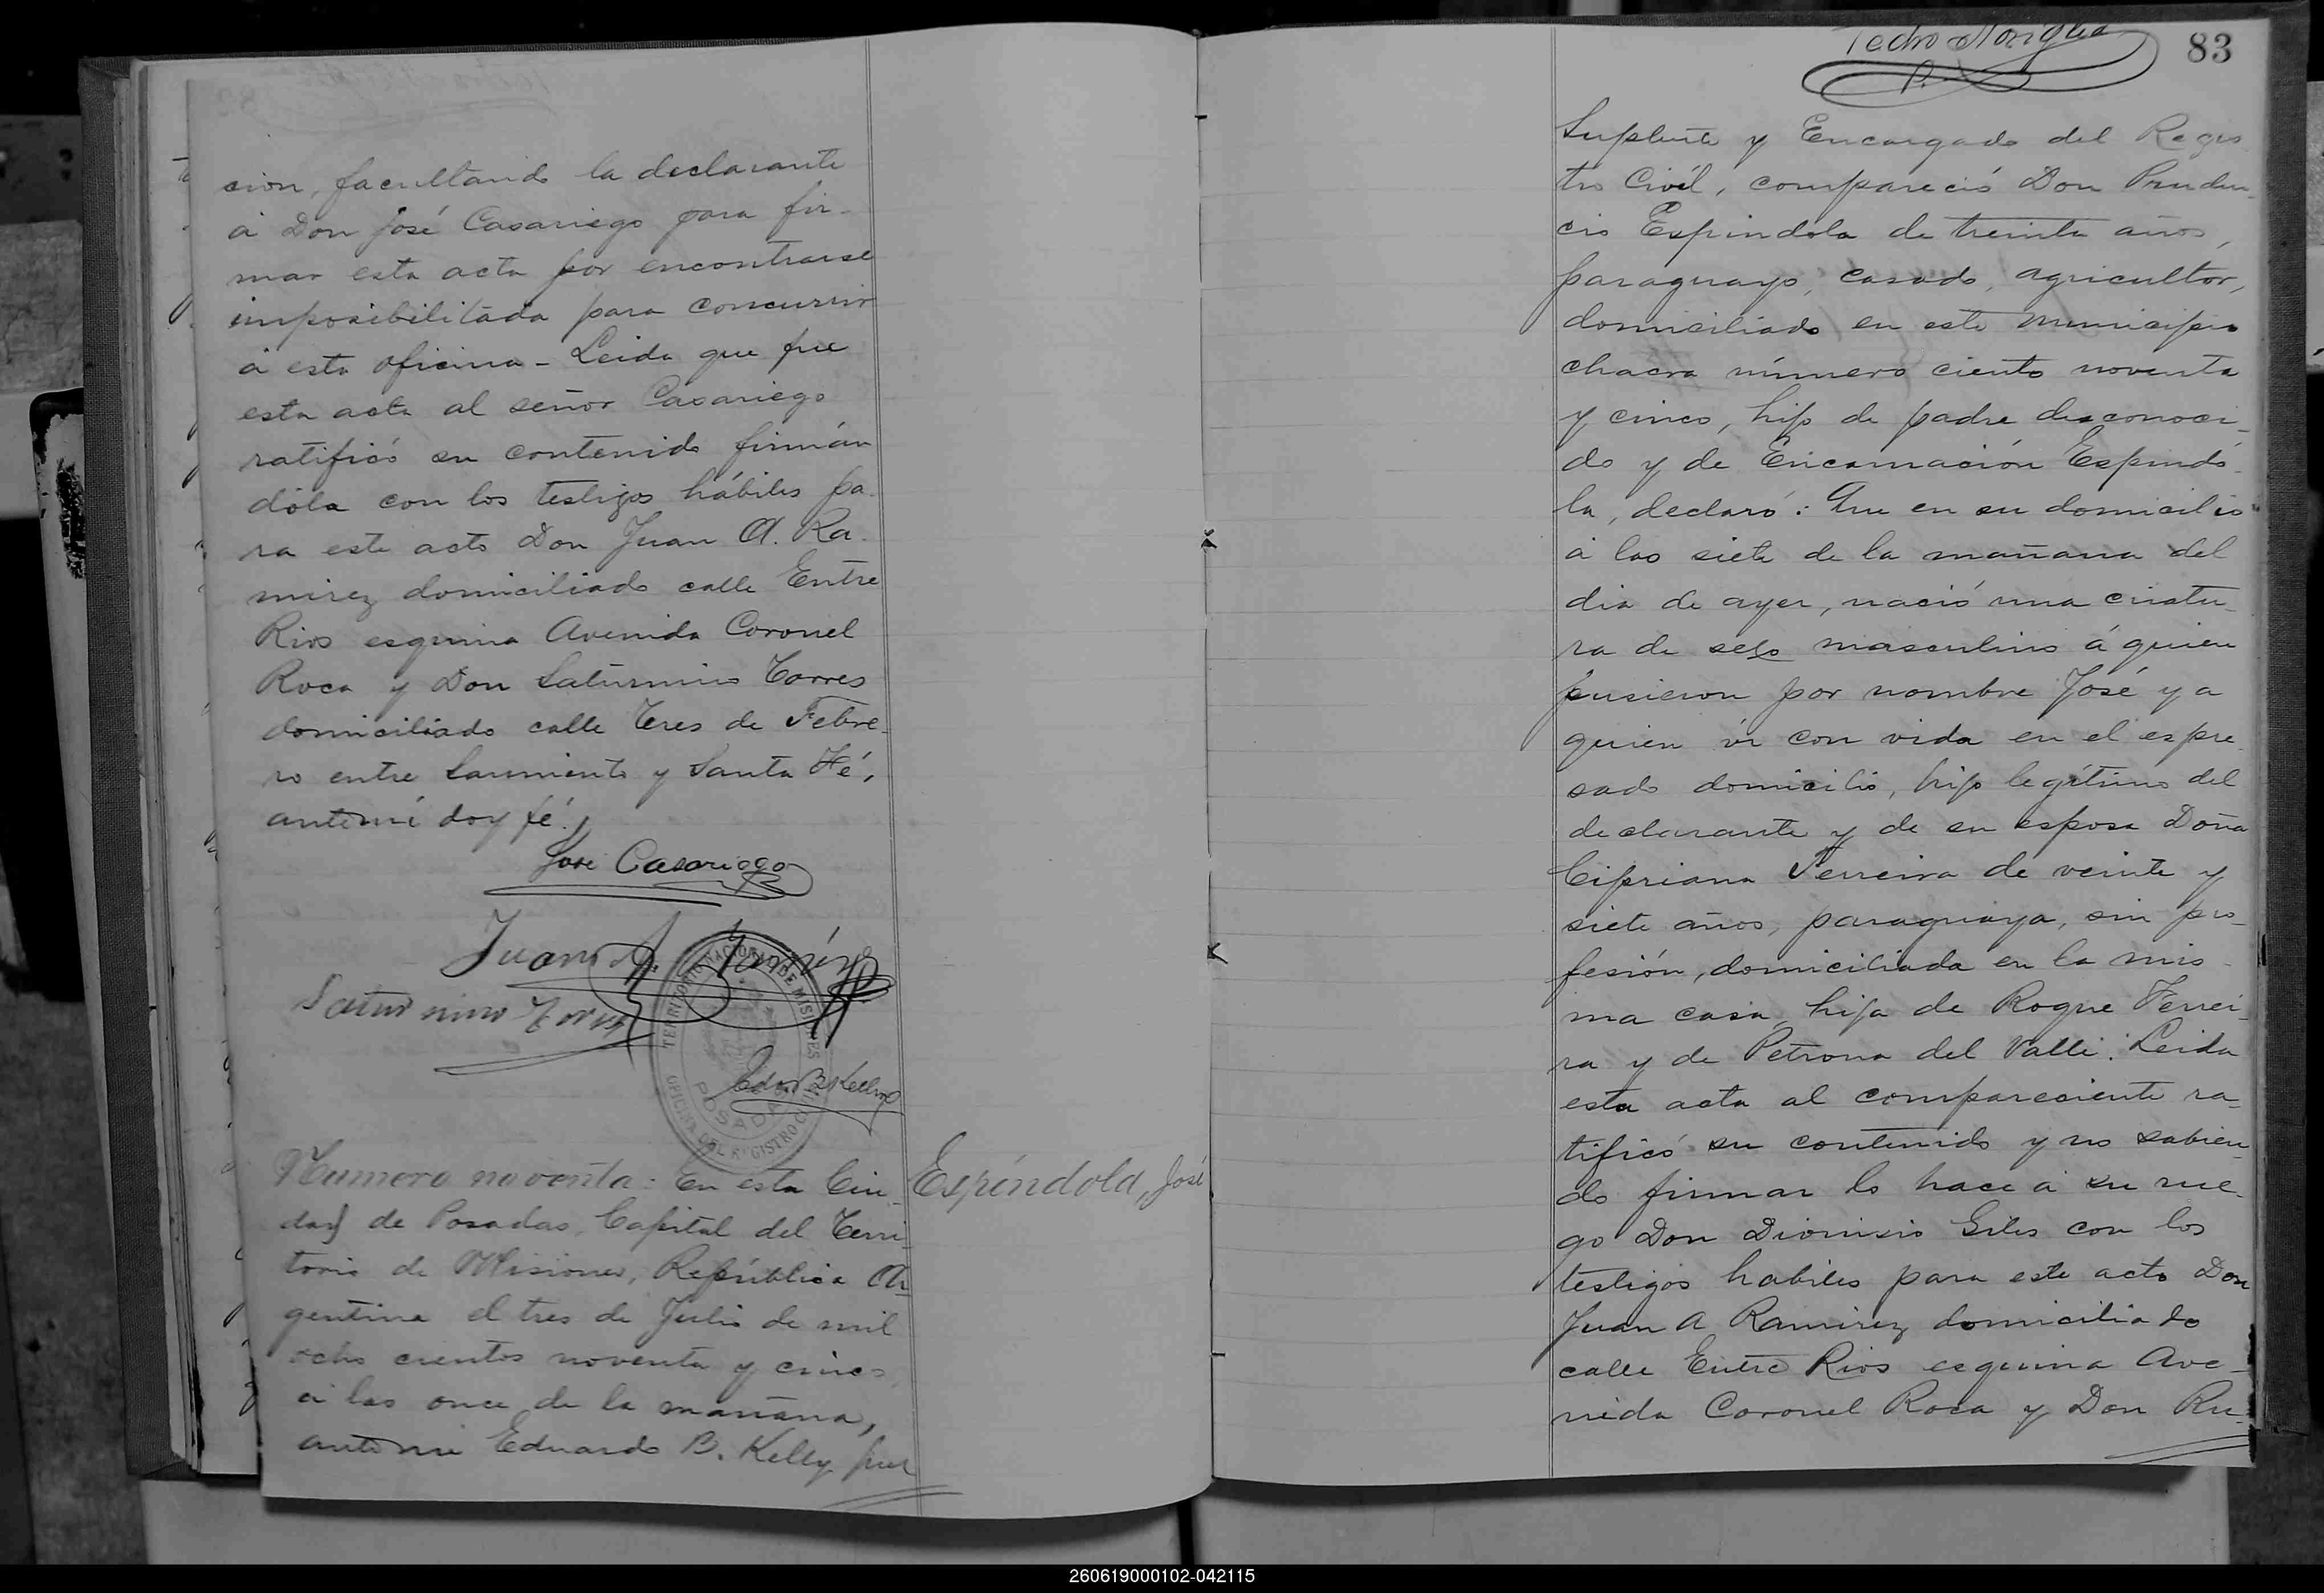 cion, facultando la declarante
á Don José Casariego para fir-
mar esta acta por encontrarse
imposibilitada para concurrir
á esta oficina - Leida que fue
esta acta al señor Casariego
ratificó su contenido firmán
dola con los testigos hábiles pa-
ra este acto Don Juan A. Ra-
mirez domiciliado calle Entre
Rios esquina Avenida Coronel
Roca y Don Saturnino Torres
domiciliado calle Tres de Febre-
ro entre Sarmiento y Santa Fé,
ante mi doy fé.
José Casariego
Juan A. Ramírez
Saturnino Torres
TERRITORIO NACIONAL DE MISIONES
POSADAS
OFICINA DEL REGISTRO CIVIL
Edo. B. Kelly
Numero noventa: En esta Ciu-
dad de Posadas, Capital del Terri-
torio de Misiones, República Ar-
gentina el tres de Julio de mil
ocho cientos noventa y cinco
á las once de la mañana,
ante mi Eduardo B. Kelly Juez
Espíndola, José
Pedro
83
Suplente y Encargado del Regis
tro Civíl, compareció Don Pruden-
cio Espindola de treinta años,
paraguayo, casado, agricultor,
domiciliado en este municipio
chacra número ciento noventa
y cinco, hijo de padre desconoci-
do y de Encarnación Espíndo-
la, declaró: Que en su domicilio
á las siete de la mañana del
dia de ayer, nació una criatu-
ra de sexo masculino á quien
pusieron por nombre José y a
quien ví con vida en el espre-
sado domicilio, hijo legítimo del
declarante y de su esposa Doña
Cipriana Ferreira de veinte y
siete años, paraguaya, sin pro-
fesión, domiciliada en la mis-
ma casa, hija de Roque Ferrei-
ra y de Petrona del Valle. Leida
esta acta al compareciente ra-
tificó su contenido y no sabien-
do firmar lo hace á su rue-
go Don Dionisio Giles con los
testigos habiles para este acto Don
Juan A Ramirez domiciliado
calle Entre Rios esquina Ave-
nida Coronel Roca y Don Ru-
260619000102-042115